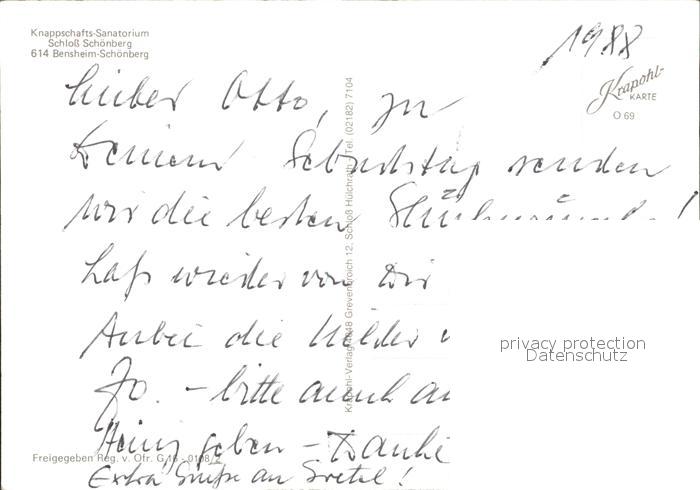 Knappschafts-Sanatorium
Schloß Schönberg
614 Bensheim-Schönberg
1988
Krapohl-
KARTE
O 69
Lieber Otto, zu
Deinem Geburtstag senden
wir die besten Glückwünsche!
Laß wieder von Dir
Anbei die Bilder
Jo. - bitte auch an
Heinz geben - Danke
Extra Grüße an Gretel!
Krapohl-Verlag, 4048 Grevenbroich 12, Schloß Hülchrath, Tel. (02182) 7104
privacy protection
Datenschutz
Freigegeben Reg. v. Ofr. G 16 -